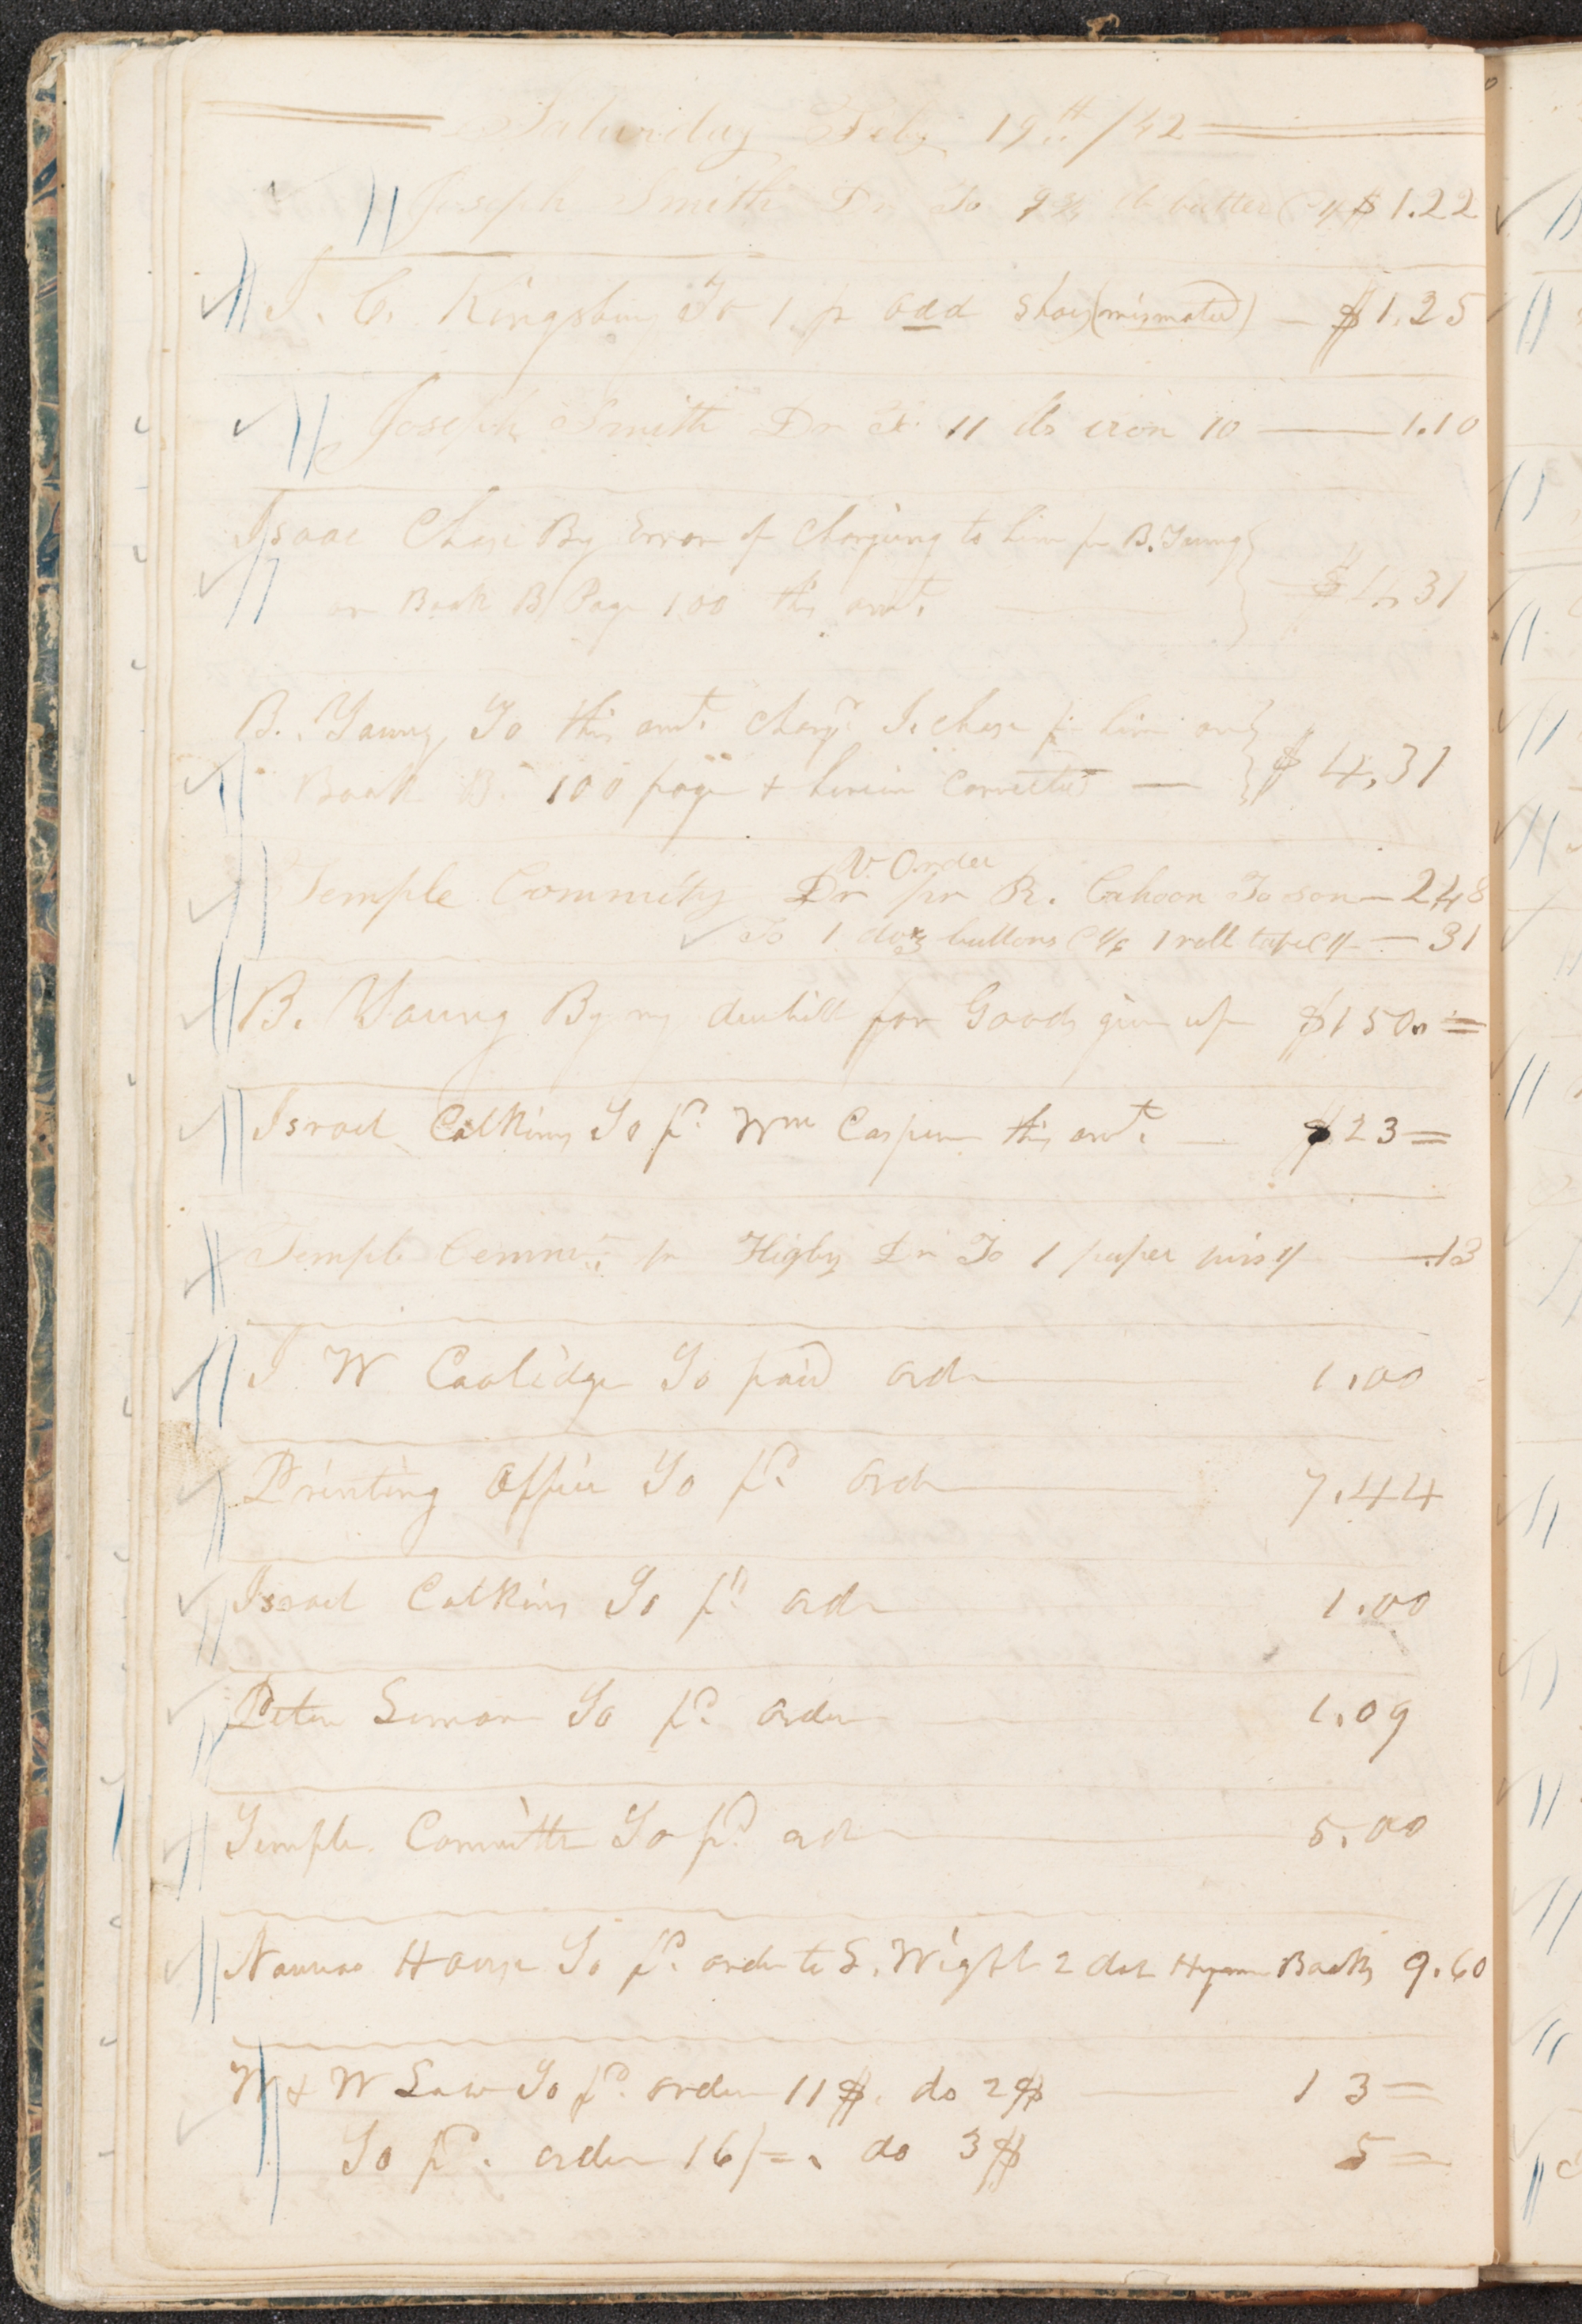 Saturday Feby 19th /42
Joseph Smith Dr To 9¾ lb butter @ 1/ $1.22
J. C. Kingsbury To 1 pr odd shoes (mismated) — $1.25
Joseph Smith Dr To 11 lbs iron 10 — 1.10
Isaac Chase By Error of Charging to him for B. Young
on Book B Page 100 this amt. — $4,31
B. Young To this amt. charg. I. chase for him on
Book B 100 page & herein corrected — $4,31
V. Order
Temple Committy Dr pr R. Cahoon To son — 248
To 1 doz buttons 1 roll tape — 31
B. Young By my duebill for Goods given up $150.=
Israel Calkins To pd. Wm Casper this amt. — $23=
Temple Commt. pr Higby Dr To 1 paper pins 1/ — .13
J W Coolidge To paid ord — 1.00
Printing office To pd. ord — 7.44
Israel Calkins To pd ord — 1.00
Peter Lemon To pd. order — 1.09
Temple Committe To pd. ord — 5.00
Nauvoo House To pd. order to L. Wight 2 doz Hymn Books 9.60
W & W Law To pd. order 11$. do 2$ 13=
To pd. order 16/=. do 3$ 5=